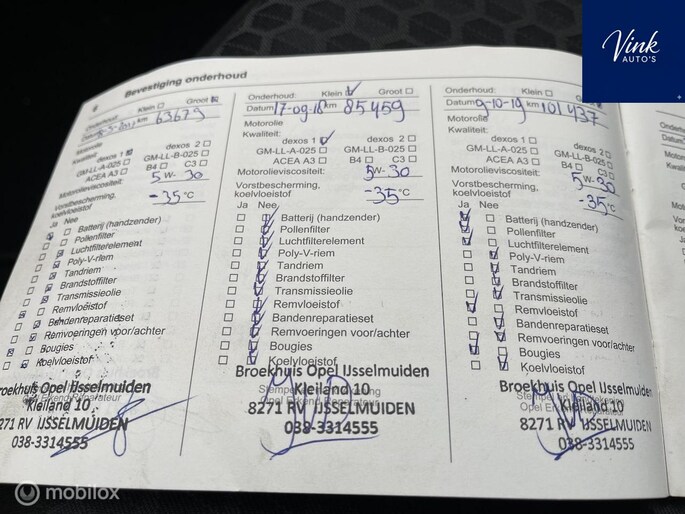 Vink
AUTO'S
Bevestiging onderhoud
Onderhoud: Klein Groot
Datum km 63679
Motorolie
Kwaliteit:
dexos 1 dexos 2
GM-LL-A-025 GM-LL-B-025
ACEA A3 B4 C3
Motorolieviscositeit:
5W-30
Vorstbescherming,
koelvloeistof -35 °C
Ja Nee
Batterij (handzender)
Pollenfilter
Luchtfilterelement
Poly-V-riem
Tandriem
Brandstoffilter
Transmissieolie
Remvloeistof
Bandenreparatieset
Remvoeringen voor/achter
Bougies
Koelvloeistof
Broekhuis Opel IJsselmuiden
Kleiland 10
8271 RV IJSSELMUIDEN
038-3314555
Onderhoud: Klein Groot
Datum 17-09-18 km 85459
Motorolie
Kwaliteit:
dexos 1 dexos 2
GM-LL-A-025 GM-LL-B-025
ACEA A3 B4 C3
Motorolieviscositeit: 5W-30
Vorstbescherming,
koelvloeistof -35 °C
Ja Nee
Batterij (handzender)
Pollenfilter
Luchtfilterelement
Poly-V-riem
Tandriem
Brandstoffilter
Transmissieolie
Remvloeistof
Bandenreparatieset
Remvoeringen voor/achter
Bougies
Koelvloeistof
Broekhuis Opel IJsselmuiden
Kleiland 10
8271 RV IJSSELMUIDEN
038-3314555
Onderhoud: Klein Groot
Datum 9-10-19 km 101437
Motorolie
Kwaliteit:
dexos 1 dexos 2
GM-LL-A-025 GM-LL-B-025
ACEA A3 B4 C3
Motorolieviscositeit:
5W-30
Vorstbescherming,
koelvloeistof -35 °C
Ja Nee
Batterij (handzender)
Pollenfilter
Luchtfilterelement
Poly-V-riem
Tandriem
Brandstoffilter
Transmissieolie
Remvloeistof
Bandenreparatieset
Remvoeringen voor/achter
Bougies
Koelvloeistof
Broekhuis Opel IJsselmuiden
Kleiland 10
8271 RV IJSSELMUIDEN
038-3314555
mobilox